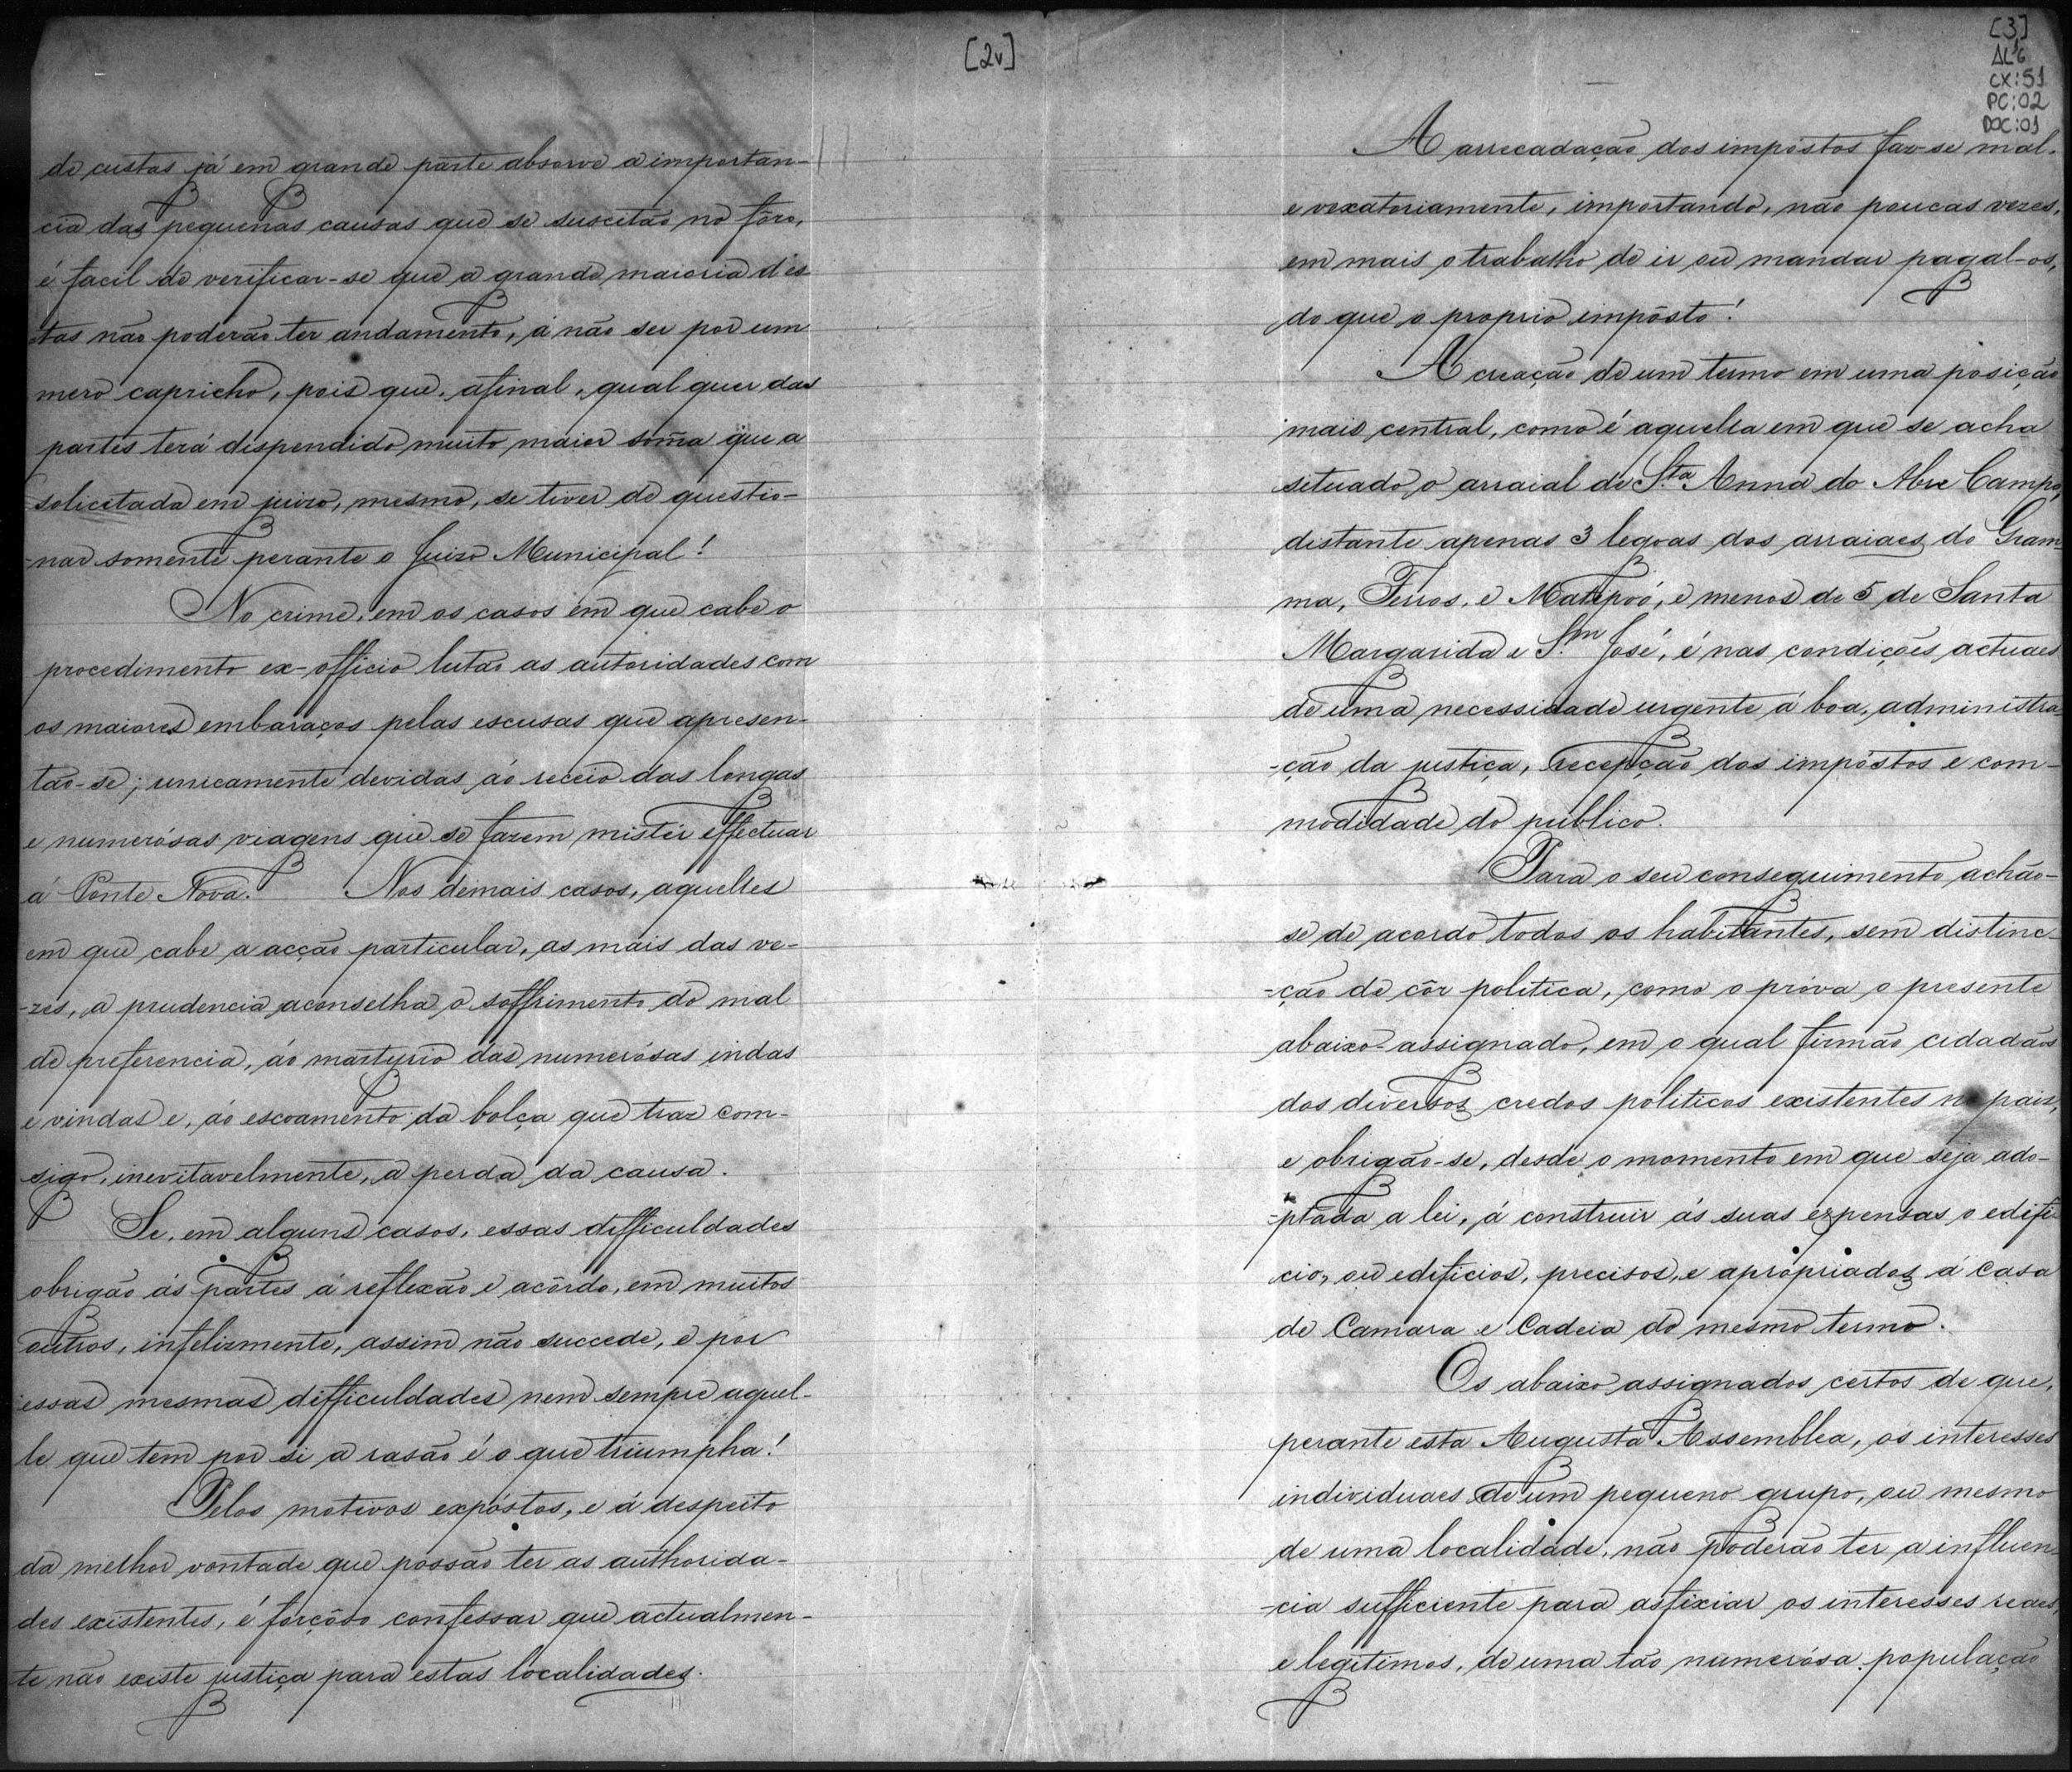 [2v]
de custas já em grande parte absorve a importan-
cia das pequenas causas que se suscitão no fôro,
é facil de verificar-se que a grande maioria d'es
tas não poderão ter andamento, á não ser por um
mero capricho, pois que, afinal, qual quer das
partes terá dispendido muito maior soma que a
solicitada em juizo, mesmo, se tiver de questio-
-nar somente perante o Juizo Municipal!
No crime, em os casos em que cabe o
procedimento ex-officio lutão as autoridades com
os maiores embaraços pelas escusas que apresen-
tão-se; unicamente devidas áo receio das longas
e numerósas viagens que se fazem mistér effectuar
á Ponte Nova. Nos demais casos, aquelles
em que cabe a acção particular, as mais das ve-
-zes, a prudencia aconselha o soffrimento do mal
de preferencia, áo martyrio das numerósas indas
e vindas e, áo escoamento da bolça que traz com-
sigo, inevitavelmente, a perda da causa.
Se, em alguns casos, essas difficuldades
obrigão ás partes á reflexão e acôrdo, em muitos
outros, infelizmente, assim não succede, e por
essas mesmas difficuldades nem sempre aquel-
le que tem por si a rasão é o que triumpha!
Pelos motivos expóstos, e á despeito
da melhor vontade que possão ter as authorida-
des existentes, é forçôso confessar que actualmen-
te não existe justiça para estas localidades.
[3]
AL'6
CX:51
PC:02
DOC:01
A arrecadação dos impóstos faz-se mal,
e vexatoriamente, importando, não poucas vezes,
em mais o trabalho de ir ou mandar pagal-os,
do que o proprio impôsto!
A creação de um termo em uma posição
mais central, como é aquella em que se acha
situado o arraial de Sta Anna do Abre Campo,
distante apenas 3 legoas dos arraiaes do Gram-
ma, Ferros, e Matipoó, e menos de 5 de Santa
Margarida e Sm José, é nas condições actuaes
de uma necessidade urgente á boa, administra
-ção da justiça, recepção dos impóstos e com-
modidade do publico.
Para o seu conseguimento achão-
se de acordo todos os habitantes, sem distinc-
-ção de côr politica, como o próva o presente
abaixo-assignado, em o qual firmão cidadãos
dos diversos credos politicos existentes no paiz,
e obrigão-se, desde o momento em que seja ado-
-ptada a lei, á construir ás suas expensas o edifi
cio, ou edificios, precisos, e apropriados á Casa
de Camara e Cadeia do mesmo termo.
Os abaixo assignados, certos de que,
perante esta Augusta Assemblea, os interesses
individuaes de um pequeno grupo, ou mesmo
de uma localidade, não poderão ter a influen-
-cia sufficiente para asfixiar os interesses reaes,
e legitimos, de uma tão numerósa população